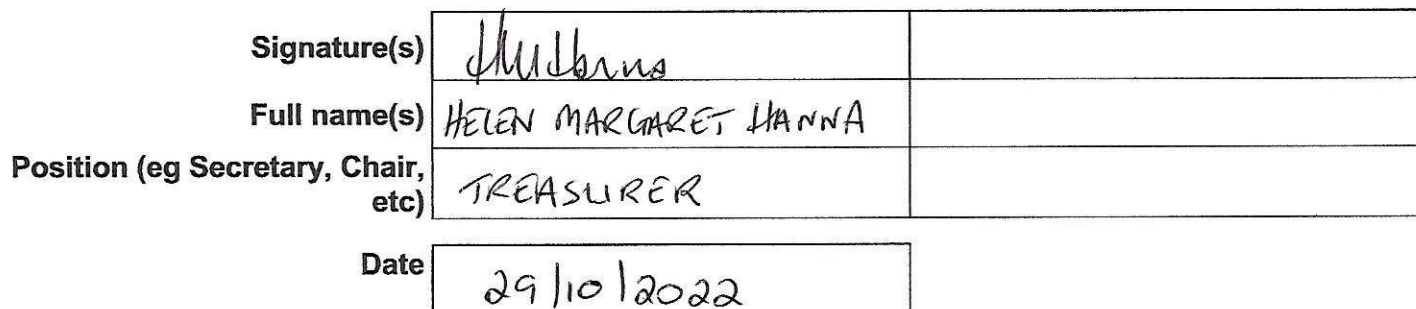 Signature(s)
Full name(s) HELEN MARGARET HANNA
Position (eg Secretary, Chair,
etc) TREASURER
Date 29/10/2022